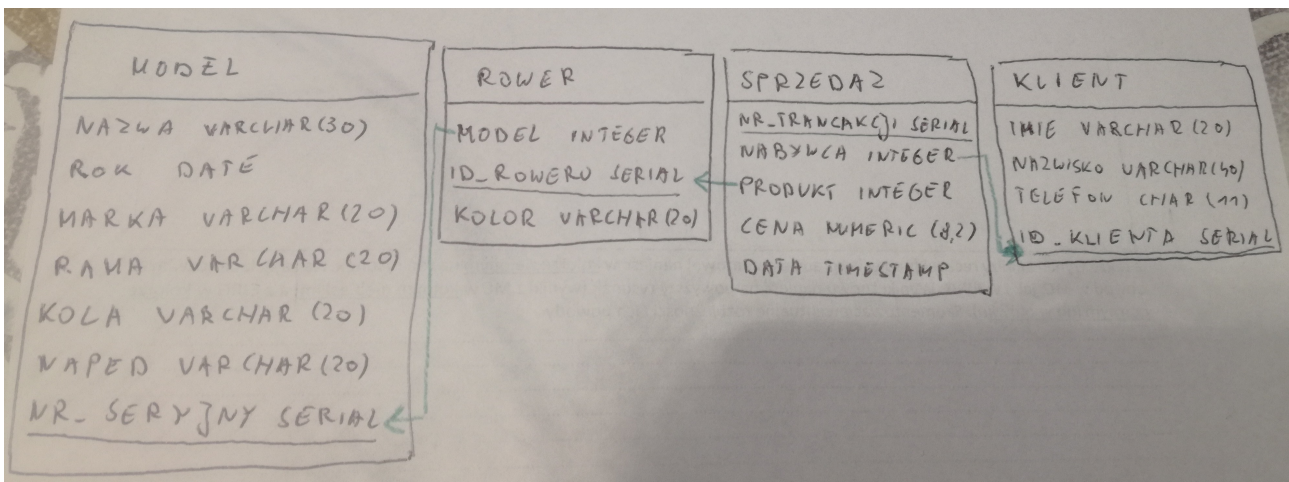 MODEL
NAZWA VARCHAR(30)
ROK DATE
MARKA VARCHAR(20)
RAMA VARCHAR (20)
KOLA VARCHAR (20)
NAPED VARCHAR(20)
NR_SERYJNY SERIAL
ROWER
MODEL INTEGER
ID_ROWERU SERIAL
KOLOR VARCHAR(20)
SPRZEDAZ
NR_TRANCAKCJI SERIAL
NABYWCA INTEGER
PRODUKT INTEGER
CENA NUMERIC (8,2)
DATA TIMESTAMP
KLIENT
IMIE VARCHAR (20)
NAZWISKO VARCHAR(40)
TELEFON CHAR (11)
ID_KLIENTA SERIAL